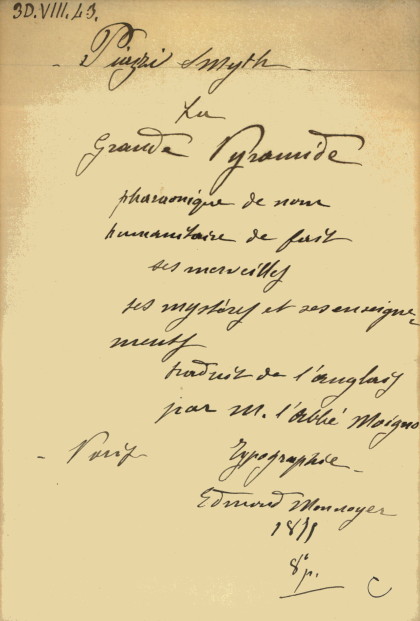 3D.VIII.43.
- Piazzi Smyth -
La
Grande Pyramide
pharaonique de nom
humanitaire de fait
ses merveilles
ses mystères et ses enseigne
ments
traduit de l'anglais
par M. l'abbé Moigno
- Paris
Typographie -
Edmond Monnoyer
18
8° p.
C